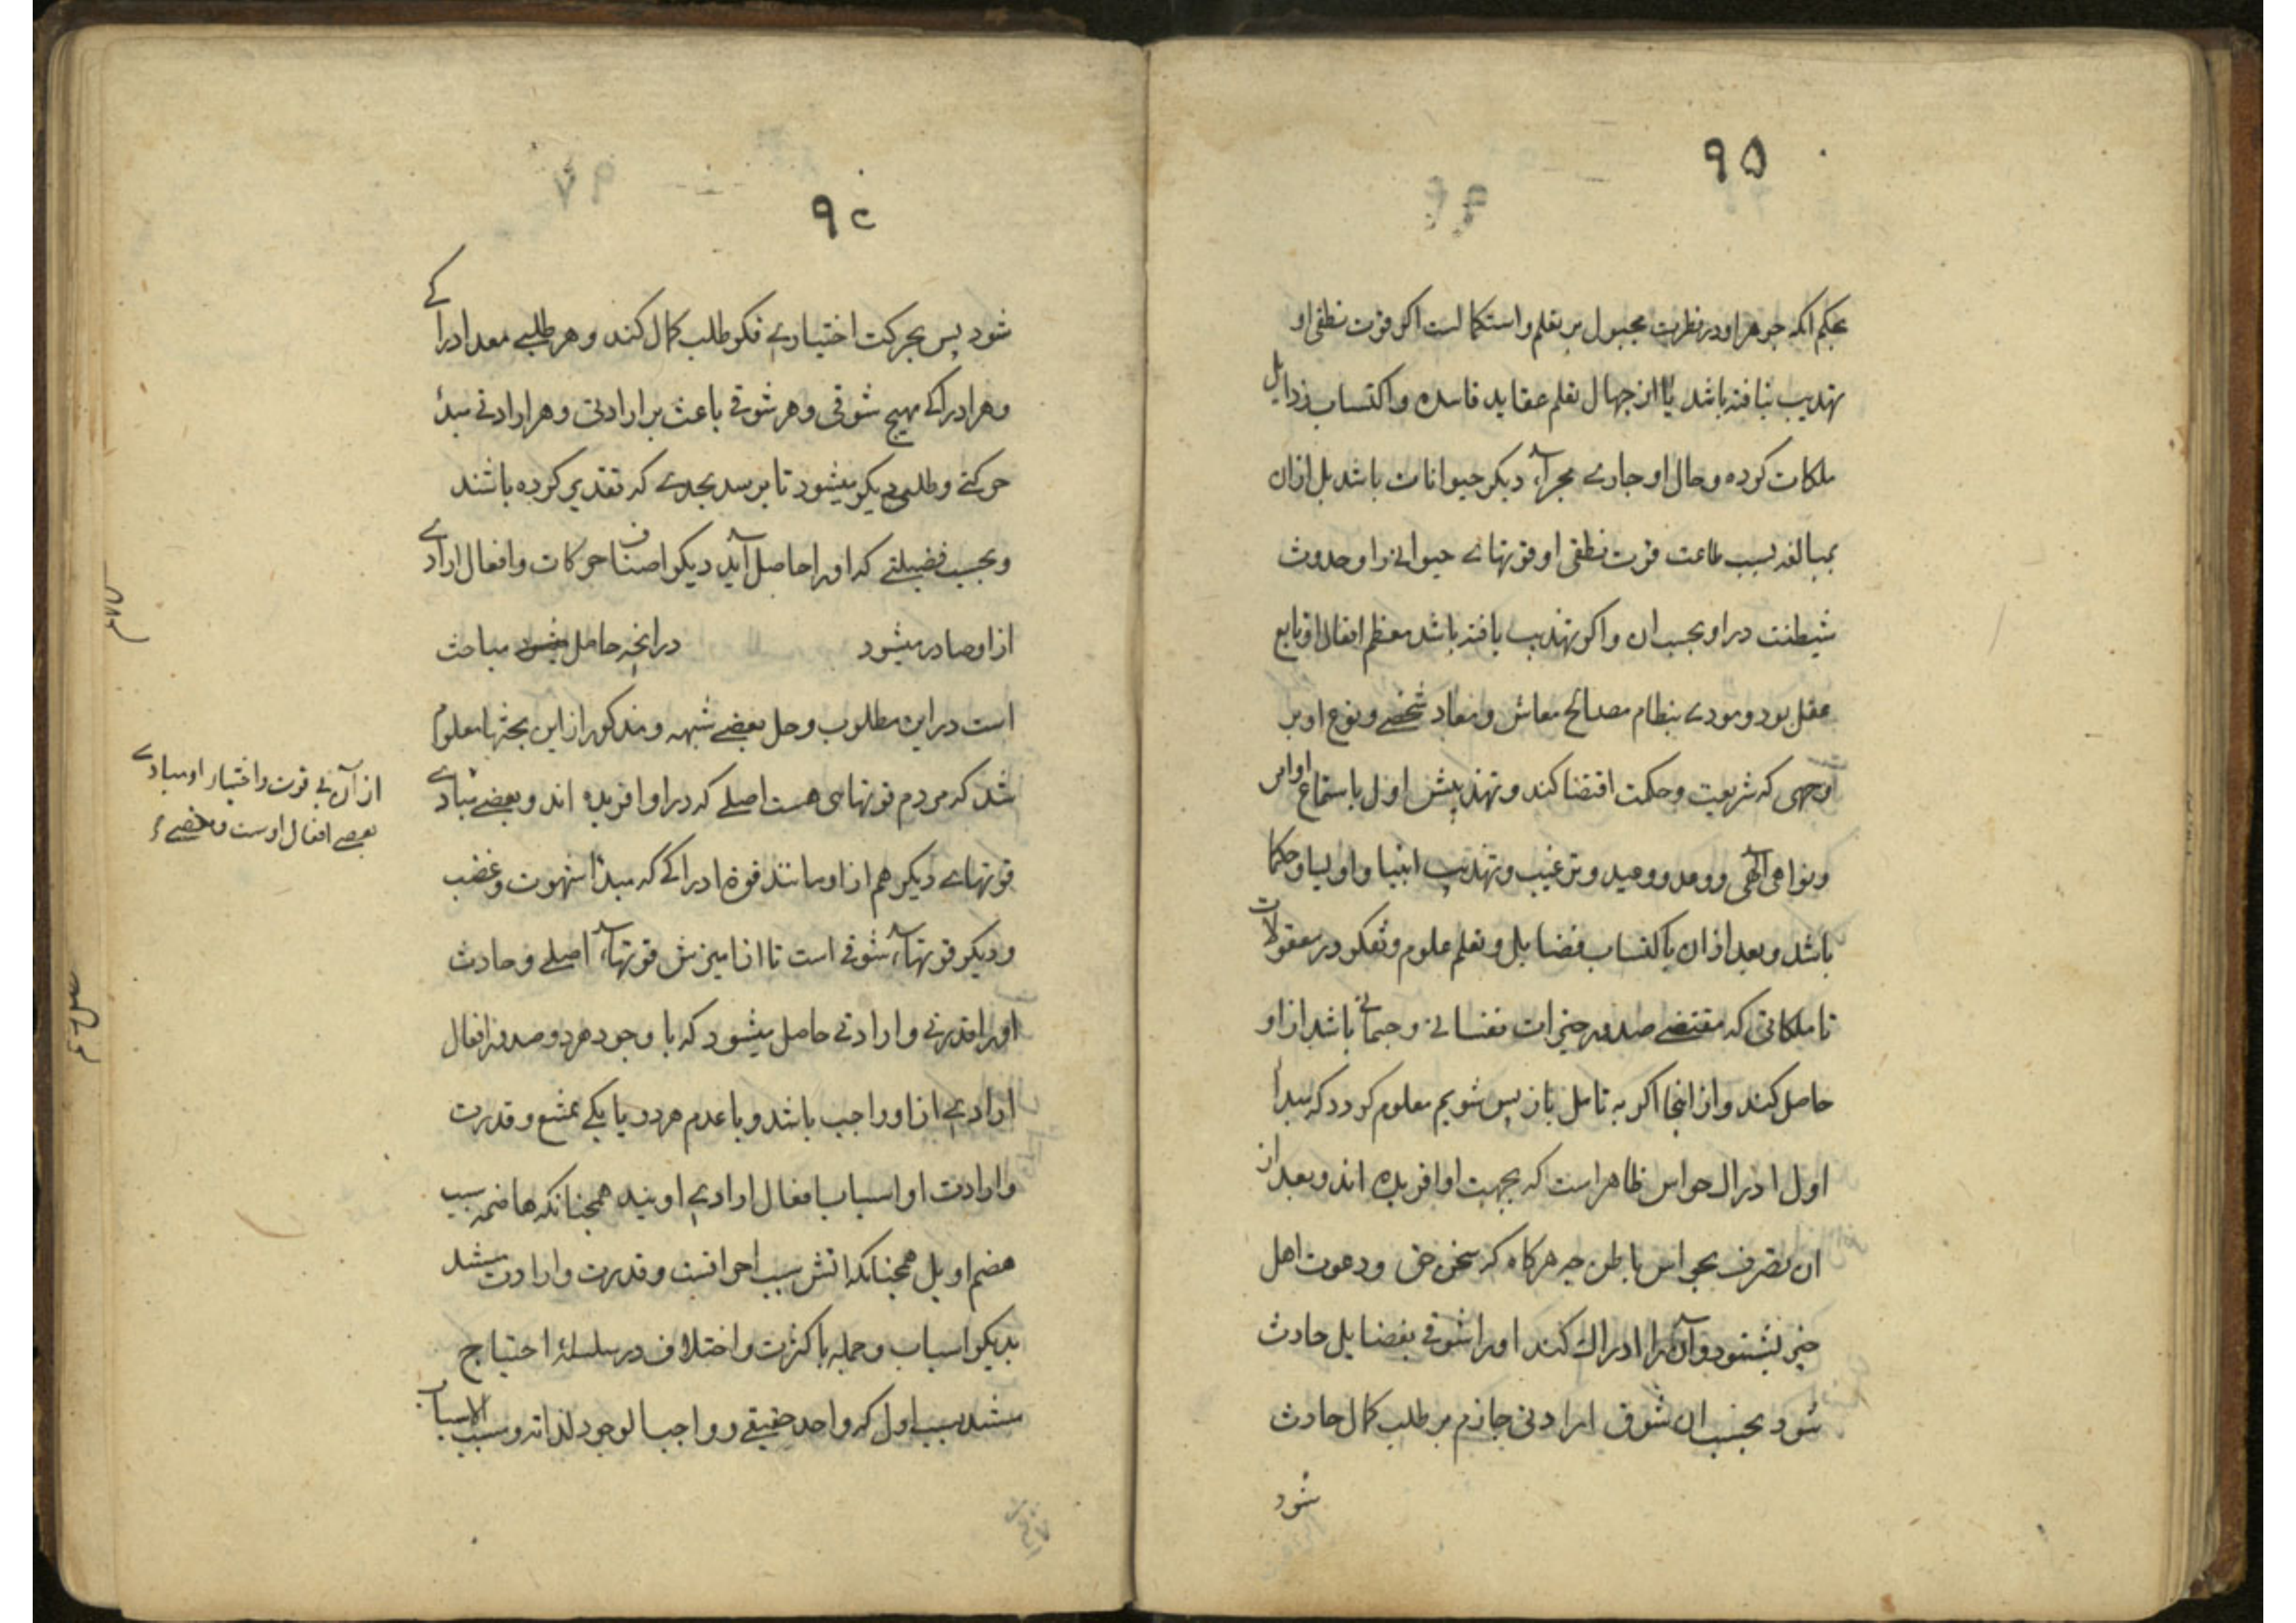 ۹۵
بحکم انکه جوهر او در فطرت مجبول بر تعلم و استکمالست اکر قوت نطقی او
تهذیب نیافته باشد یا از جهال تعلم عقاید فاسده و اکتساب رذایل
ملکات کرده و حال او جاری مجرای دیکر حیوانات باشد بل ازان
بمبالغه بسبب طاعت قوت نطقی او قوتهای حیوانی را و حدوث
شیطنت در او بحسب ان و اکر تهذیب یافته باشد معظم افعال او تابع
عقل بود و مودی بنظام مصالح معاش و معاد شخصی و نوع او بر
وجهی که شریعت و حکمت اقتضا کند و تهذیبش اول باستماع اوامر
و نواهی الهی و وعد و وعید و ترغیب و تهذیب انبیا و اولیا و حکما
باشد و بعد ازان باکتساب فضایل و تعلم علوم و تفکر در معقولات
تا ملکاتی که مقتضی صدور خیرات نفسانی و جسمانی باشد از او
حاصل کند و از اینجا اکر به تامل باز پس شویم معلوم کردد که مبدأ
اول ادراک حواس ظاهر است که بجهت او افریده اند و بعد از
ان تصرف بحواس باطن چه هرکاه که سخن حق و دعوت اهل
خیر بشنود و آن را ادراک کند او را شوقی بفضایل حادث
شود بحسب ان شوق ارادتی جازم بر طلب کمال حادث
شود
۹۶
شود پس بحرکت اختیاری فکر طلب کمال کند و هر طلبی معد ادراکی
و هر ادراکی مهیج شوقی و هر شوقی باعث بر ارادتی و هر ارادتی مبدء
حرکتی و طلبی دیکر میشود تا برسد بحدی که تقدیر کرده باشند
و بحسب فضیلتی که او را حاصل آید دیکر اصناف حرکات و افعال ارادی
از او صادر میشود در انچه حاصل میشود مباحث
است در این مطلوب و حل بعضی شبهه و مذکور از این بحثها معلوم
شد که مردم قوتهای هست اصلی که در او افریده اند و بعضی مبادی
قوتهای دیکر هم از او مانند قوة ادراکی که مبدأ شهوت و غضب
و دیکر قوتهای شوقی است تا از امیزش قوتهای اصلی و حادث
او را قدرتی و ارادتی حاصل میشود که با وجود هر دو صدور افعال
ارادی از او واجب باشد و با عدم هر دو یا یکی ممتنع و قدرت
و ارادت او اسباب افعال ارادی اویند همچنانکه هاضمه سبب
هضم او بل همچنانکه اتش سبب احراقست و قدرت و ارادت مستند
بدیکر اسباب و جمله با کثرت و اختلاف در سلسلهٔ احتیاج
مستند بسبب اول که واحد حقیقی و واجب الوجود لذاته و مسبب الاسباب
از آن بی قوت و اختیار او مبادی
بعضی افعال اوست و بعضی